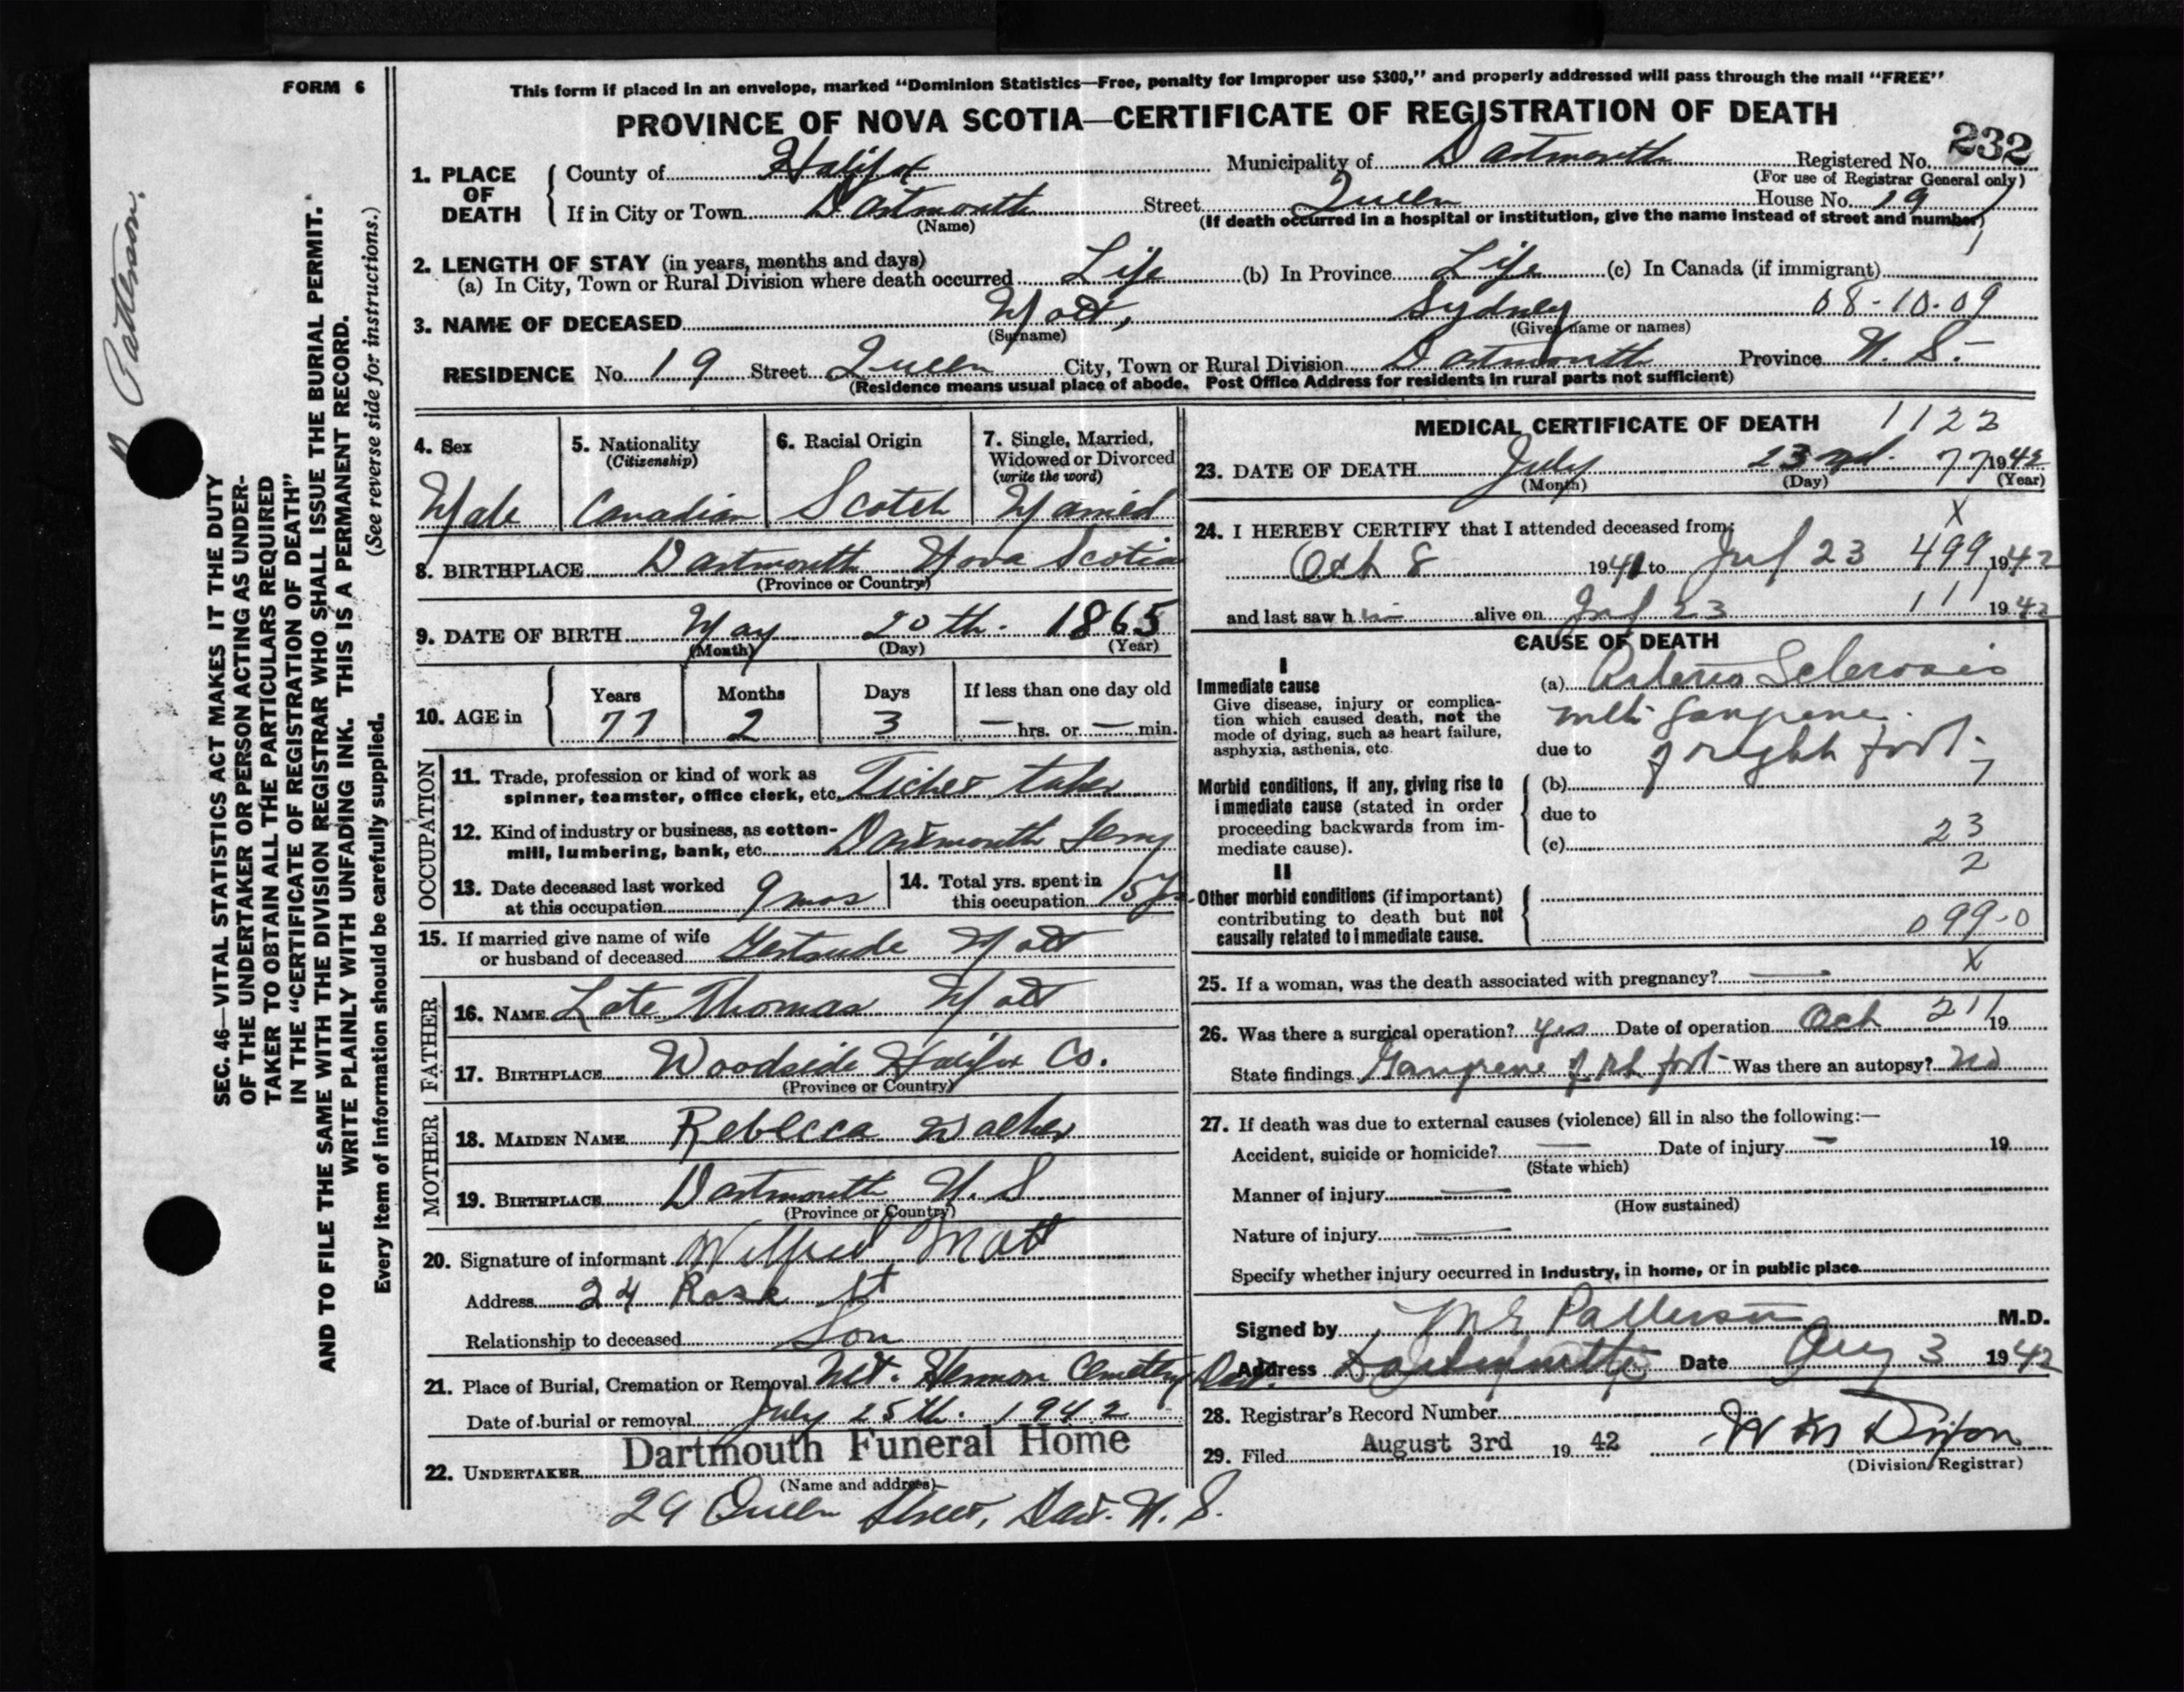 FORM 6
This form if placed in an envelope, marked "Dominion Statistics—Free, penalty for improper use $300," and properly addressed will pass through the mail "FREE"
PROVINCE OF NOVA SCOTIA—CERTIFICATE OF REGISTRATION OF DEATH
232
1. PLACE OF DEATH
County of Halifax Municipality of Dartmouth Registered No.
(For use of Registrar General only)
If in City or Town Dartmouth Street Queen House No. 19
(Name) (If death occurred in a hospital or institution, give the name instead of street and number)
2. LENGTH OF STAY (in years, months and days)
(a) In City, Town or Rural Division where death occurred Life (b) In Province Life (c) In Canada (if immigrant)
3. NAME OF DECEASED Mott, Sydney 08-10-09
(Surname) (Given name or names)
RESIDENCE No. 19 Street Queen City, Town or Rural Division Dartmouth Province N. S.-
(Residence means usual place of abode. Post Office Address for residents in rural parts not sufficient)
4. Sex
Male
5. Nationality
(Citizenship)
Canadian
6. Racial Origin
Scotch
7. Single, Married, Widowed or Divorced
(write the word)
Married
8. BIRTHPLACE Dartmouth Nova Scotia
(Province or Country)
9. DATE OF BIRTH May 20th. 1865
(Month) (Day) (Year)
10. AGE in
Years Months Days If less than one day old
77 2 3 — hrs. or — min.
OCCUPATION
11. Trade, profession or kind of work as
spinner, teamster, office clerk, etc. Ticket taker
12. Kind of industry or business, as cotton-
mill, lumbering, bank, etc. Dartmouth Ferry
13. Date deceased last worked
at this occupation 9 mos
14. Total yrs. spent in
this occupation
15. If married give name of wife
or husband of deceased Gertrude Mott
FATHER
16. NAME Late Thomas Mott
17. BIRTHPLACE Woodside Halifax Co.
(Province or Country)
MOTHER
18. MAIDEN NAME Rebecca Walker
19. BIRTHPLACE Dartmouth N. S
(Province or Country)
20. Signature of informant Wilfred Mott
Address 24 Rose St
Relationship to deceased Son
21. Place of Burial, Cremation or Removal Mt. Hermon Cemetery Dart.
Date of burial or removal July 25th. 1942
Dartmouth Funeral Home
22. UNDERTAKER
(Name and address)
29 Queen Street, Dart. N. S.
MEDICAL CERTIFICATE OF DEATH 1122
23. DATE OF DEATH July 23rd. 77 1942
(Month) (Day) (Year)
X
24. I HEREBY CERTIFY that I attended deceased from:
Oct 8 1941 to Jul 23 499 1942
and last saw him alive on Jul 23 111 1942
CAUSE OF DEATH
I
Immediate cause
Give disease, injury or complica-
tion which caused death, not the
mode of dying, such as heart failure,
asphyxia, asthenia, etc.
(a) Arterio Sclerosis
with gangrene
due to of right foot.
Morbid conditions, if any, giving rise to
immediate cause (stated in order
proceeding backwards from im-
mediate cause).
(b)
due to
(c) 23
2
II
Other morbid conditions (if important)
contributing to death but not
causally related to immediate cause.
099-0
X
25. If a woman, was the death associated with pregnancy? —
26. Was there a surgical operation? yes Date of operation Oct 21 19
State findings Gangrene of rt foot Was there an autopsy? no
27. If death was due to external causes (violence) fill in also the following:—
Accident, suicide or homicide? — Date of injury — 19
(State which)
Manner of injury —
(How sustained)
Nature of injury —
Specify whether injury occurred in Industry, in home, or in public place
Signed by Patterson M.D.
Address Dartmouth Date Aug 3 1942
28. Registrar's Record Number
29. Filed August 3rd 19 42 Dixon
(Division Registrar)
Patterson.
SEC. 46—VITAL STATISTICS ACT MAKES IT THE DUTY
OF THE UNDERTAKER OR PERSON ACTING AS UNDER-
TAKER TO OBTAIN ALL THE PARTICULARS REQUIRED
IN THE "CERTIFICATE OF REGISTRATION OF DEATH"
AND TO FILE THE SAME WITH THE DIVISION REGISTRAR WHO SHALL ISSUE THE BURIAL PERMIT.
WRITE PLAINLY WITH UNFADING INK. THIS IS A PERMANENT RECORD.
Every item of information should be carefully supplied. (See reverse side for instructions.)